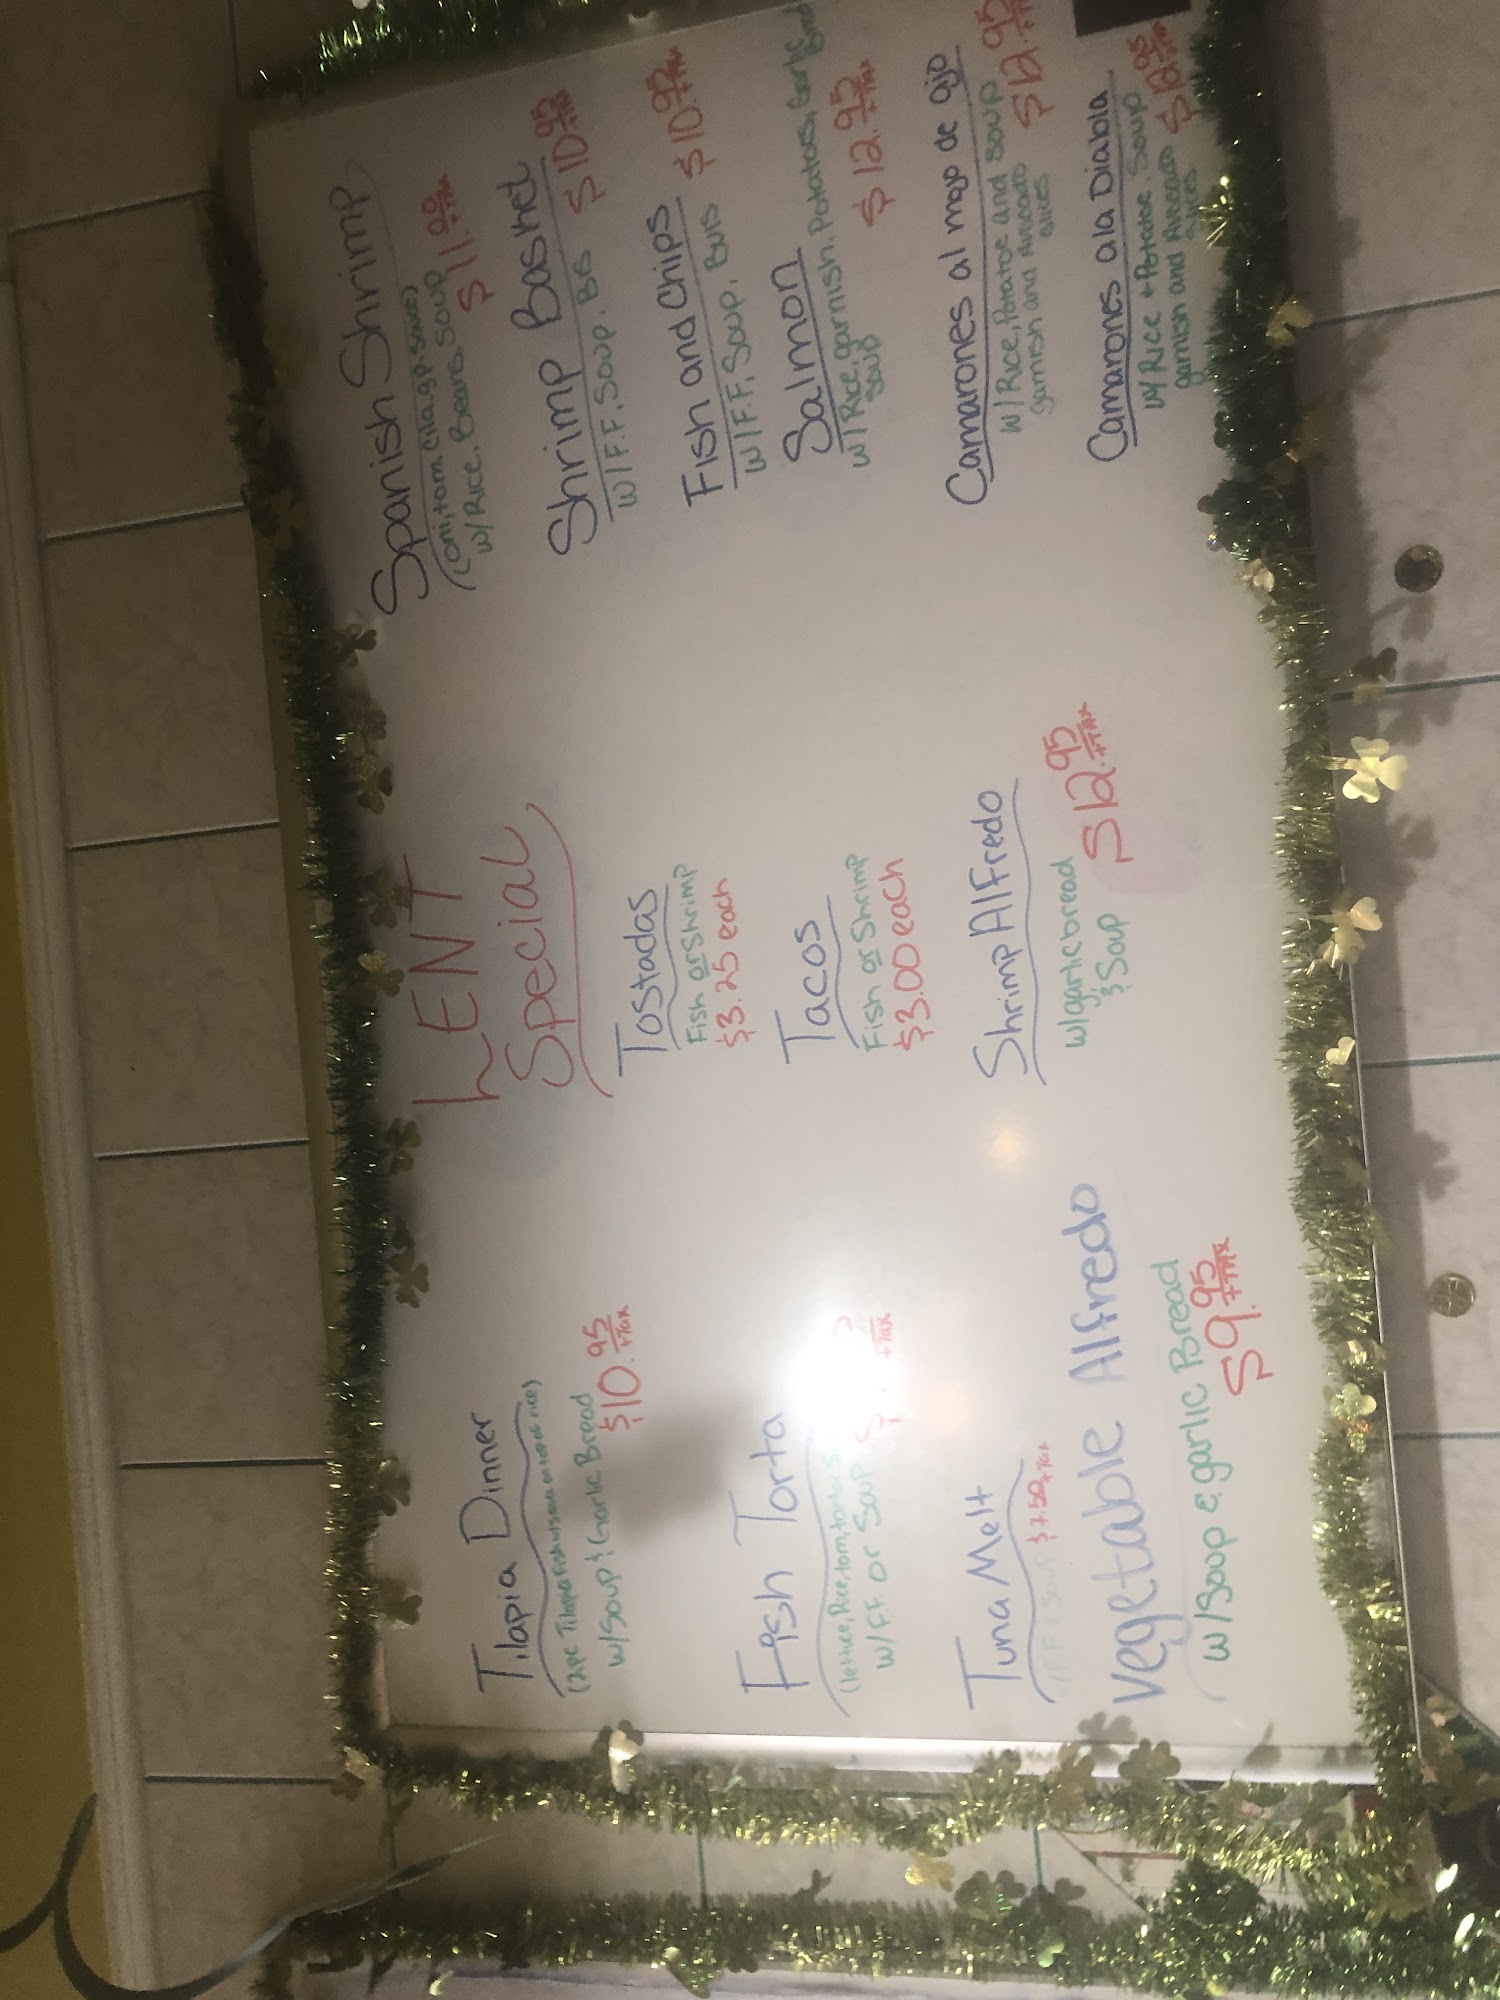 LENT
Special
Tilapia Dinner
(2pc Tilapia Fish w/sauce on top of rice)
w/Soup & Garlic Bread
$10.95 +Tax
Fish Torta
(lettuce, Rice, tom, tartar
w/F.F or Soup
+Tax
Tuna Melt
F.F or Soup $7.50 +Tax
Vegetable Alfredo
w/Soup & garlic Bread
$9.95 +TAX
Tostadas
Fish or Shrimp
$3.25 each
Tacos
Fish or Shrimp
$3.00 each
Shrimp Alfredo
w/garlic bread
& Soup $12.95 +TAX
Spanish Shrimp
(oni, tom, cila, g.p. sauce)
w/Rice, Beans, Soup
$11. +TAX
Shrimp Basket
w/F.F, Soup, $10.95 +TAX
Fish and Chips
w/F.F, Soup, $10.95 +TAX
Salmon
w/Rice, garnish, Potatoes, Garlic Bread
Soup $12.95 +TAX
Camarones al mojo de ajo
w/Rice, Potatoe and soup
garnish and Avocado $12.95
slices
Camarones a la Diabla
w/Rice + Potatoe, Soup
garnish and Avocado $12.95
slices